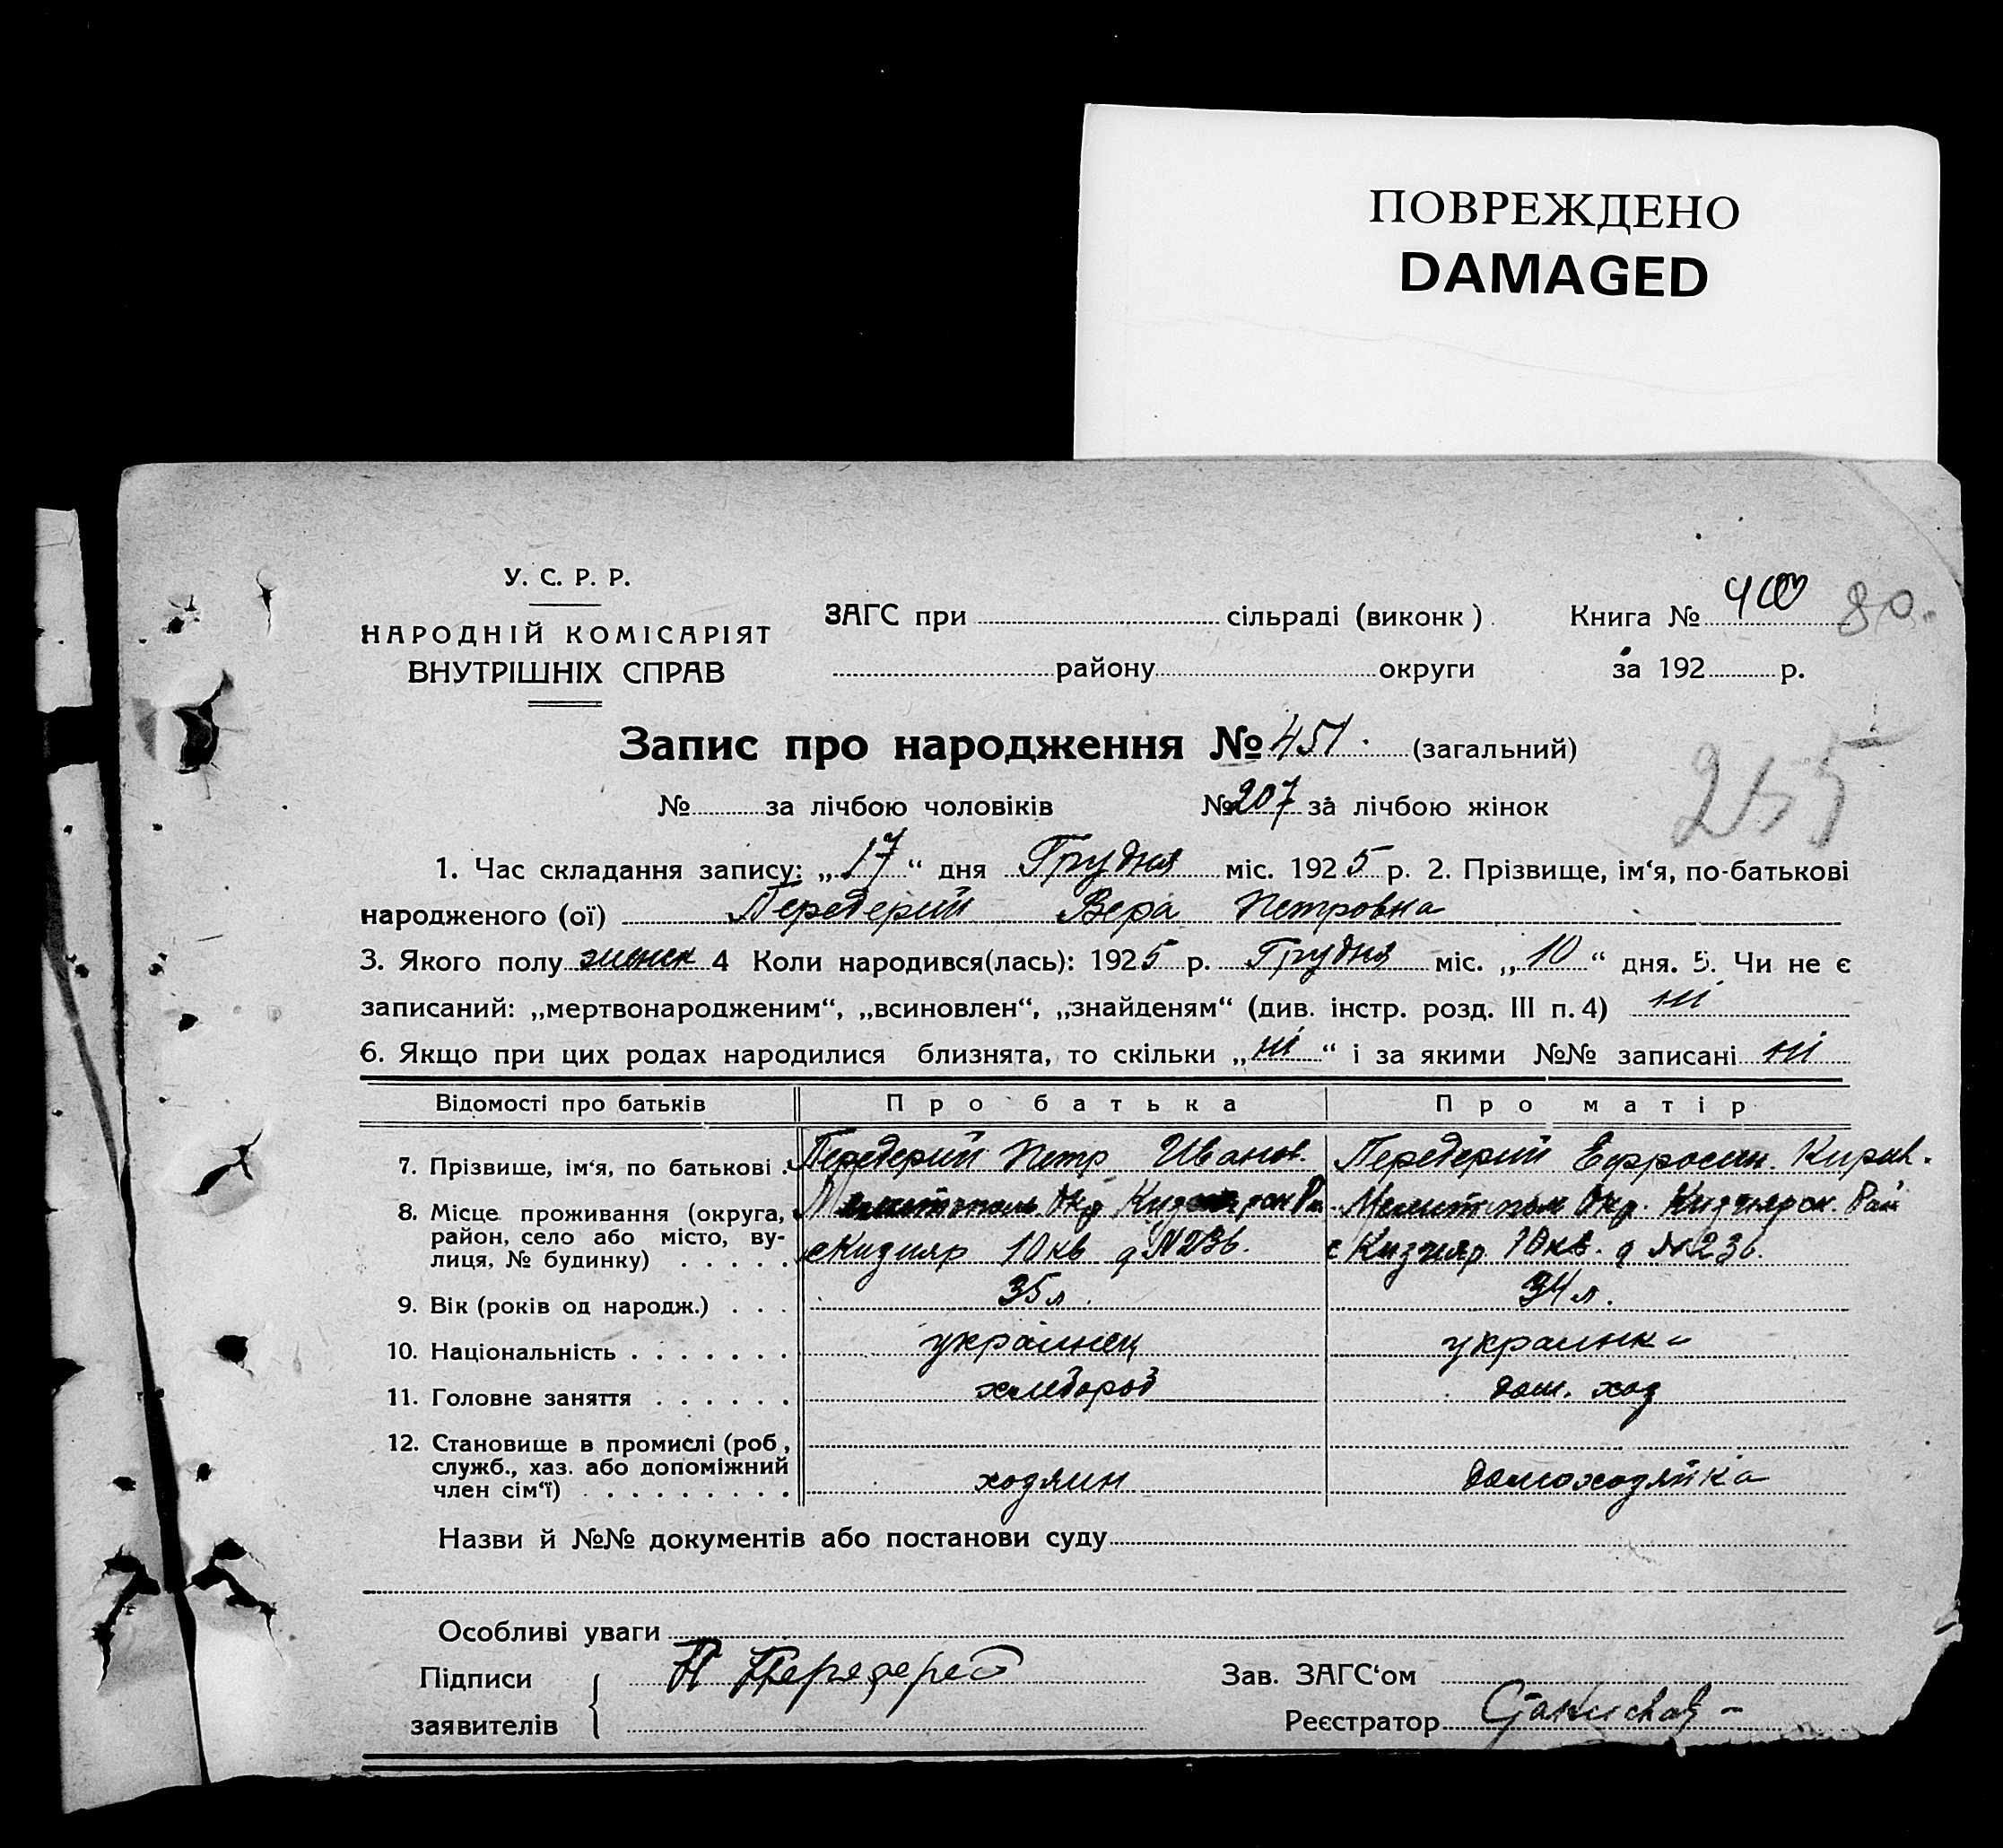 ПОВРЕЖДЕНО
DAMAGED
У. С. Р. Р.
НАРОДНІЙ КОМІСАРІЯТ
ВНУТРІШНІХ СПРАВ
ЗАГС при сільраді (виконк)
Книга № 80.
району округи за 192 р.
Запис про народження № 451. (загальний)
255
№ за лічбою чоловіків № 207 за лічбою жінок
1. Час складання запису: „17“ дня Грудня міс. 1925 р. 2. Прізвище, ім‘я, по-батькові
народженого (ої) Передерий Вера Петровна
3. Якого полу 4 Коли народився(лась): 1925 р. Грудня міс. „10“ дня. 5. Чи не є
записаний: „мертвонародженим“, „всиновлен“, „знайденям“ (див. інстр. розд. III п. 4) ні
6. Якщо при цих родах народилися близнята, то скільки „ні“ і за якими №№ записані ні
Відомості про батьків Про батька Про матір
7. Прізвище, ім‘я, по батькові . Передерий Петр Иванов. Передерий Ефросин. Кирил.
8. Місце проживання (округа,
район, село або місто, ву-
лиця, № будинку) . . . . . с Кизияр 10 кв д N236. с Кизияр 10 кв. д №236.
9. Вік (років од народж.) . . . 35 л. 34 л.
10. Національність . . . . . . . украинец украинка
11. Головне заняття . . . . . . хлебороб дом. хоз
12. Становище в промислі (роб,
служб., хаз. або допоміжний
член сім‘ї) . . . . . . . . . хозяин домохозяйка
Назви й №№ документів або постанови суду
Особливі уваги
Підписи П Передерей Зав. ЗАГС‘ом
заявителів Реєстратор